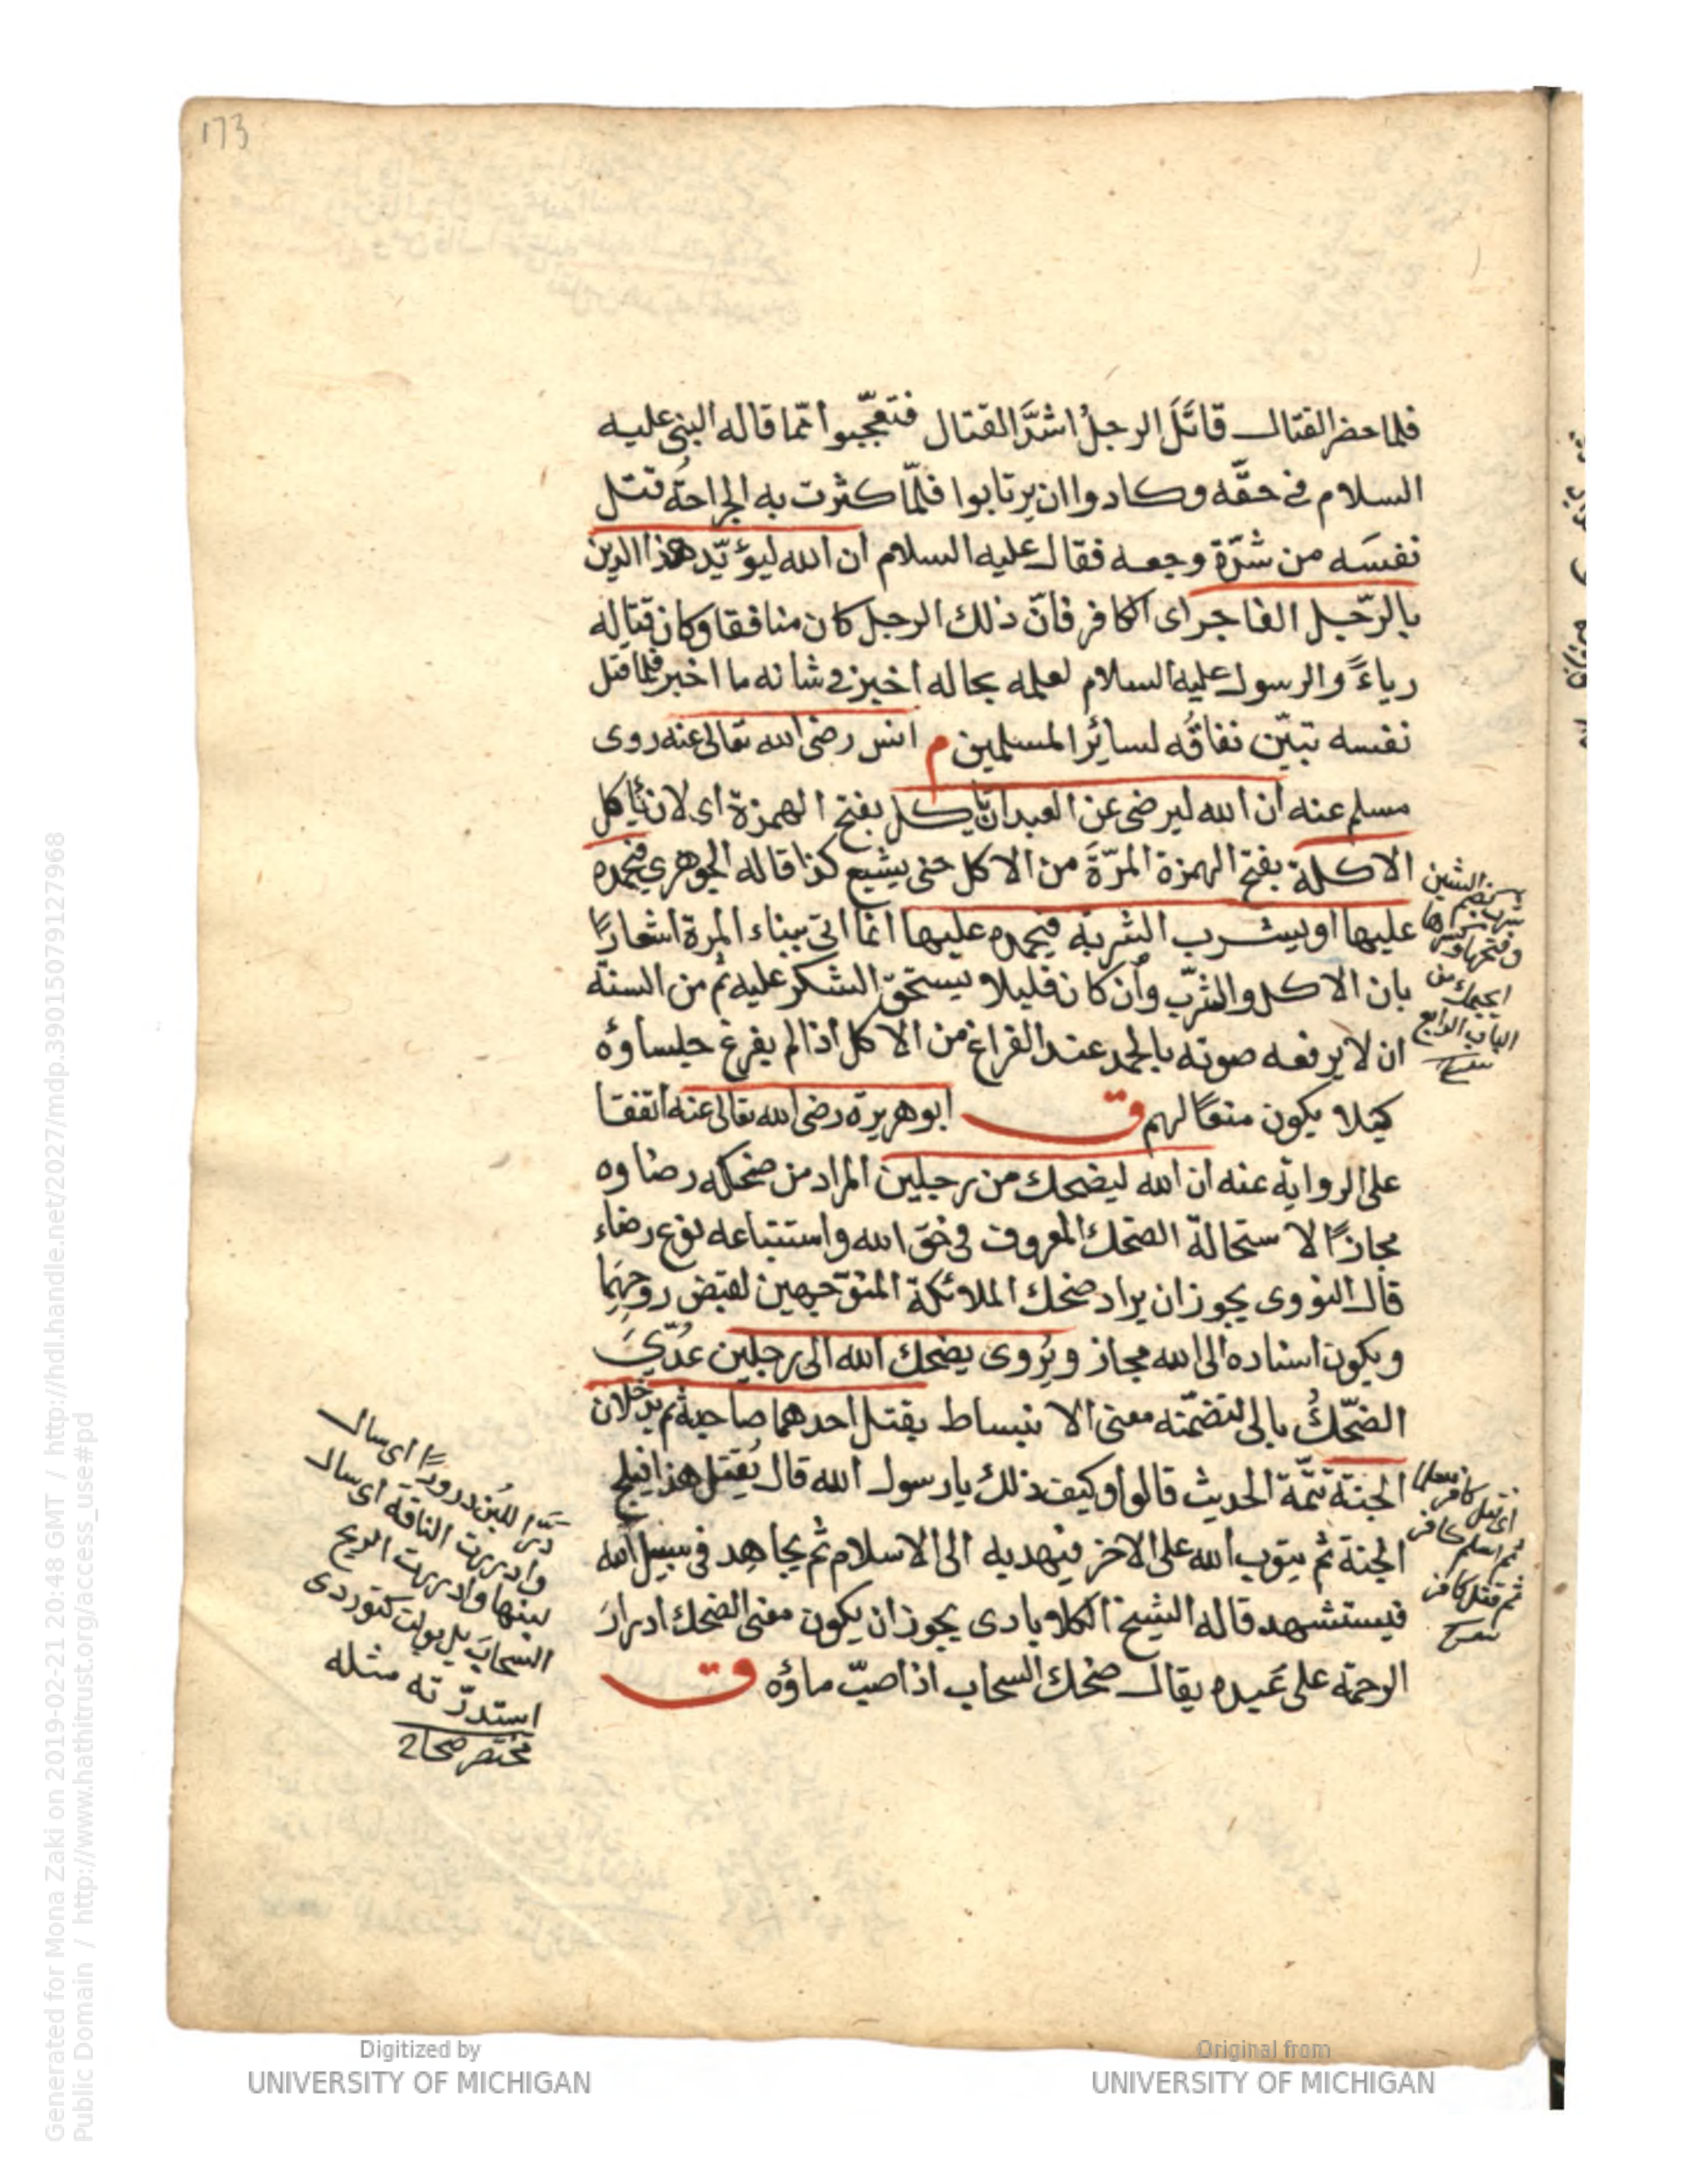 173
فلما حضر القتال قاتَلَ الرجلُ اشدَّ القتال فتعجّبوا ممّا قاله النبى عليه
السلام فى حقّه وكادوا ان يرتابوا فلمّا كثرت به الجراحةُ قتل
نفسَه من شدّة وجعه فقال عليه السلام ان الله ليؤيّد هذا الدين
بالرّجل الفاجر اى الكافر فانّ ذلك الرجل كان منافقا وكان قتاله
رياءً والرسول عليه السلام لعلمه بحاله اخبر فى شانه ما اخبر فلما قتل
نفسه تبيّن نفاقُه لسائر المسلمين م انس رضى الله تعالى عنه روى
مسلم عنه ان الله ليرضى عن العبد ان ياكل بفتح الهمزة اى لان ياكل
الاكلة بفتح الهمزة المرّةَ من الاكل حتى يشبع كذا قاله الجوهرى فيحمده
عليها او يشرب الشربة فيحمده عليها انما اتى ببناء المرة اشعارًا
بان الاكل والشرب وان كان قليلا يستحقّ الشكر عليه ثم من السنة
ان لا يرفعه صوته بالحمد عند الفراغ من الاكل اذا لم يفرغ جلساؤه
كيلا يكون منعًا لهم ق ابو هريرة رضى الله تعالى عنه اتفقا
على الرواية عنه ان الله ليضحك من رجلين المراد من ضحكه رضاوه
مجازًا لاستحالة الضحك المعروف فى حق الله واستتباعه نوع رضاء
قال النووى يجوز ان يراد ضحك الملائكة المتوّجهين لقبض روحهما
ويكون اسناده الى الله مجاز ويُروى يضحك الله الى رجلين عُدّىَ
الضحّكُ بالى لتضمّنه معنى الانبساط يقتل احدهما صاحبه ثم يدخلان
الجنة تتمّة الحديث قالوا وكيف ذلك يا رسول الله قال يُقتل هذا فيلج
الجنة ثم يتوب الله على الاخر فيهديه الى الاسلام ثم يجاهد فى سبيل الله
فيستشهد قاله الشيخ الكلابادى يجوز ان يكون معنى الضحك ادرارَ
الرحمة على عَبيده يقال ضحك السحاب اذا صبّ ماؤه ق
شرب بضم الشين
وفتحها وكسرها
من
الباب الرابع
اى قتل كافر مسلما
ثم اسلم كافر
ثم قتل كافر
درّ اللبن درورًا اى سال
وادررت الناقة اى سال
لبنها وادررت الريح
السحابَ
استدرّته مثله
مختصر صحاح
Generated for Mona Zaki on 2019-02-21 20:48 GMT / http://hdl.handle.net/2027/mdp.39015079127968
Public Domain / http://www.hathitrust.org/access_use#pd
Digitized by
UNIVERSITY OF MICHIGAN
Original from
UNIVERSITY OF MICHIGAN